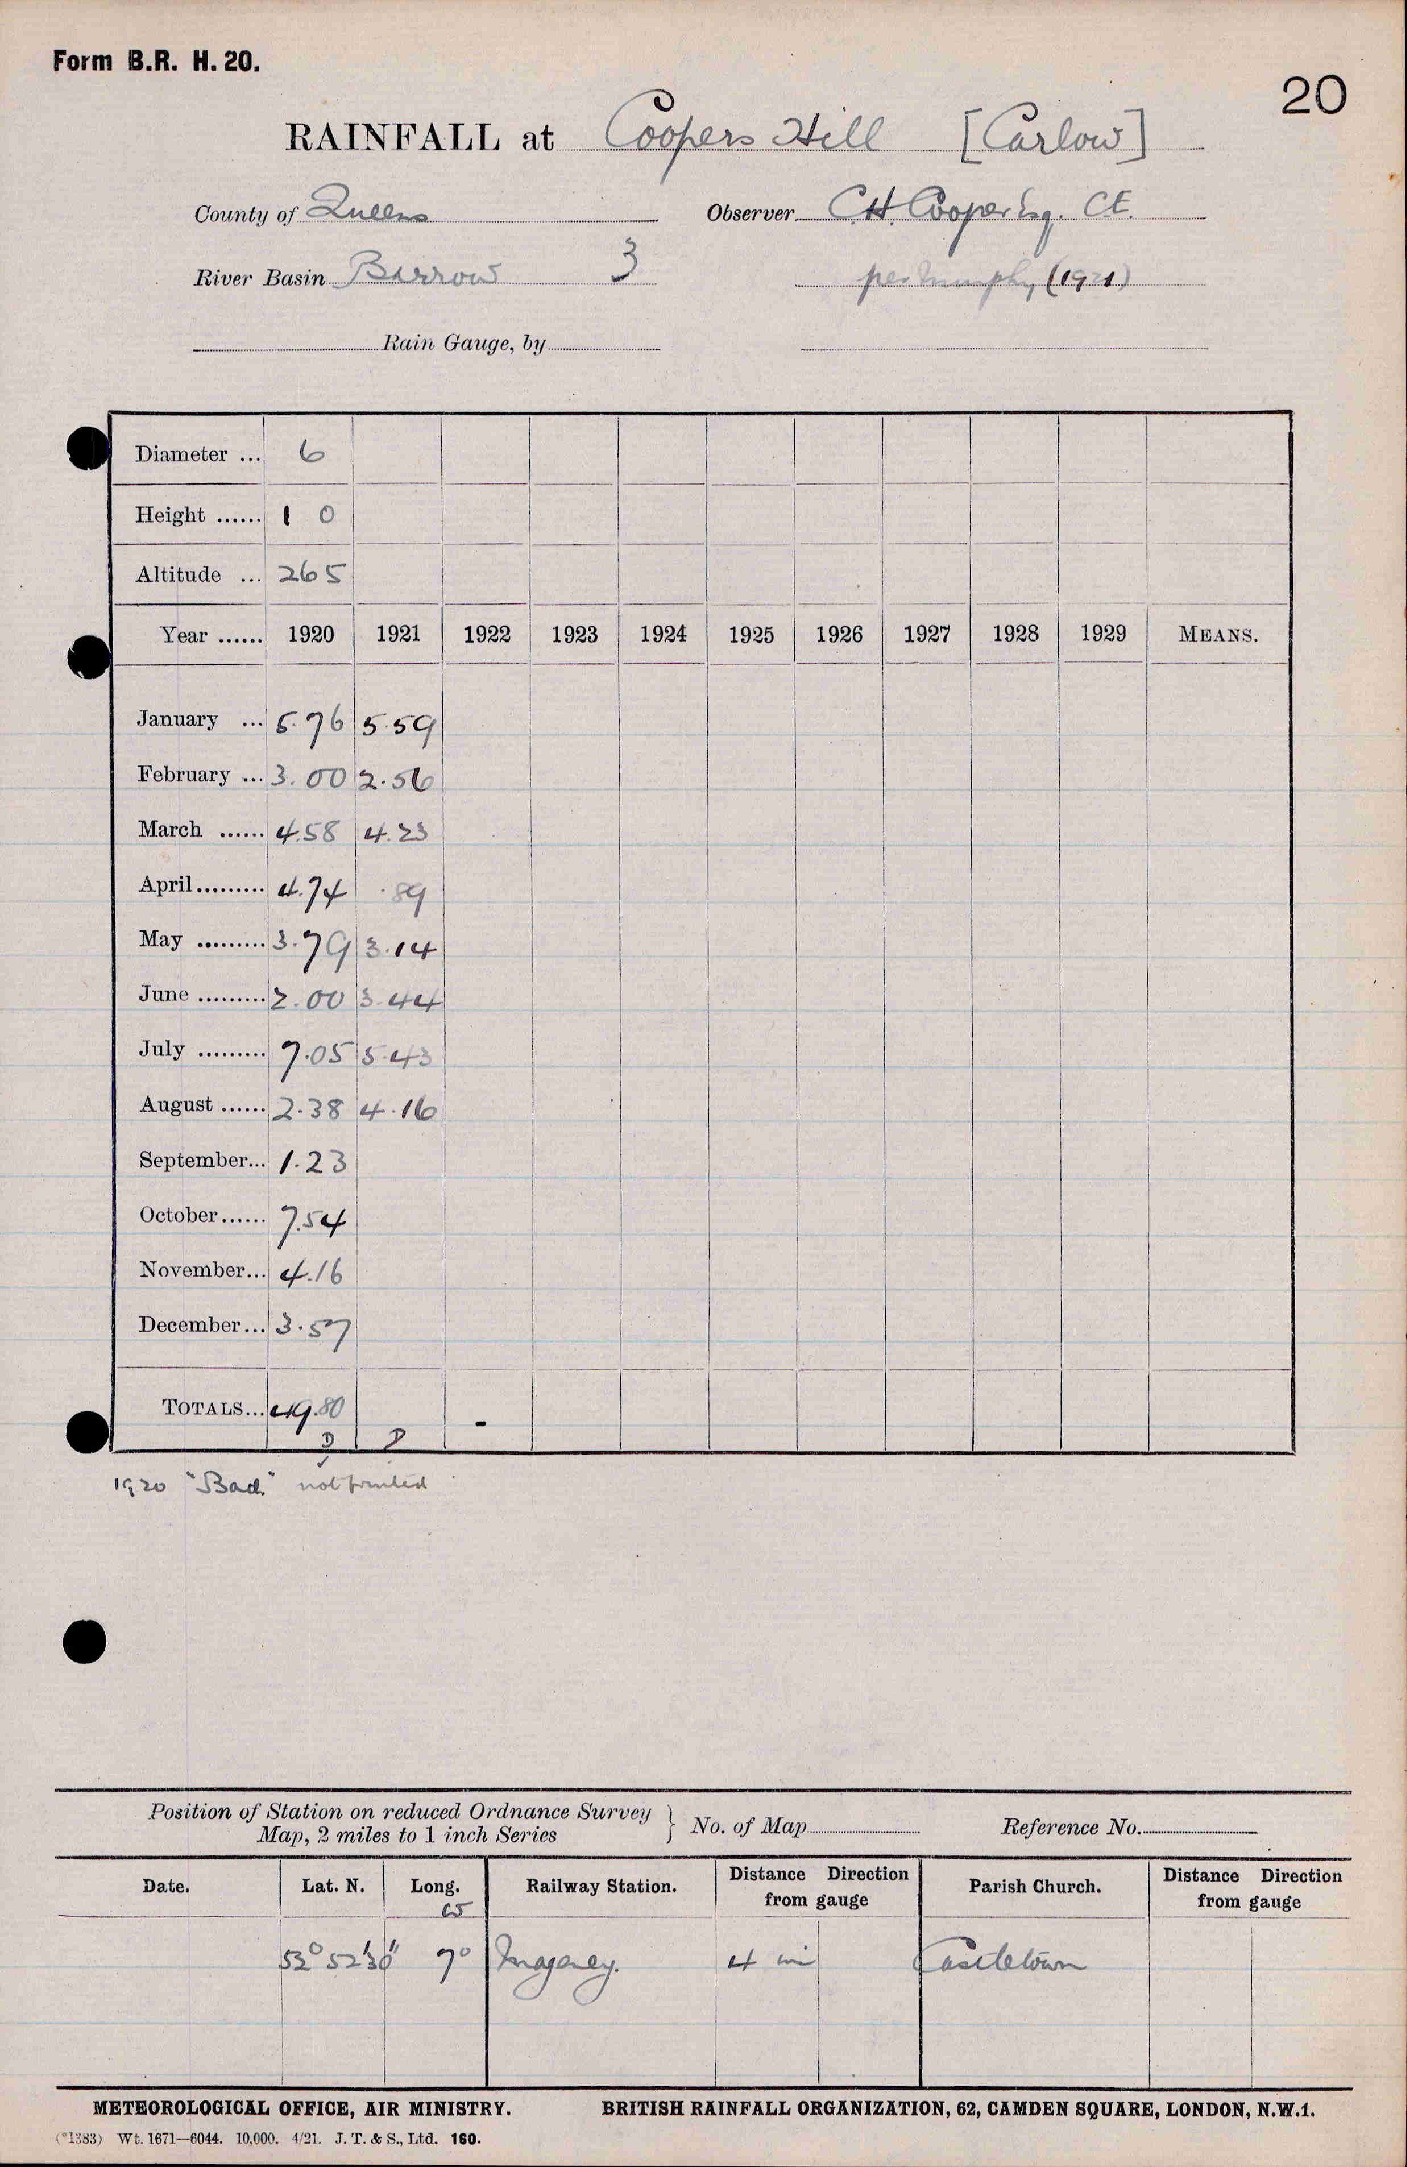 Form B.R. H. 20.
20
RAINFALL at Coopers Hill [Carlow]
County of Queens Observer C.H. Cooper Esq. C.E.
River Basin Barrow 3 per Murphy (1921)
Rain Gauge, by
Diameter ... 6
Height ...... 1 0
Altitude ... 265
Year ...... 1920 1921 1922 1923 1924 1925 1926 1927 1928 1929 MEANS.
January ... 5.76 5.59
February ... 3.00 2.56
March ...... 4.58 4.23
April......... 4.74 .89
May ......... 3.79 3.14
June ......... 2.00 3.44
July ......... 7.05 5.43
August ...... 2.38 4.16
September... 1.23
October...... 7.54
November... 4.16
December... 3.57
TOTALS... 49.80 -
D D
1920 "Bad" not printed
Position of Station on reduced Ordnance Survey
Map, 2 miles to 1 inch Series } No. of Map Reference No.
Date. Lat. N. Long. W Railway Station. Distance Direction from gauge Parish Church. Distance Direction from gauge
52° 52' 30" 7° Mageney. 4 mi Castletown
METEOROLOGICAL OFFICE, AIR MINISTRY. BRITISH RAINFALL ORGANIZATION, 62, CAMDEN SQUARE, LONDON, N.W.1.
(*1383) Wt. 1671—6044. 10,000. 4/21. J. T. & S., Ltd. 160.